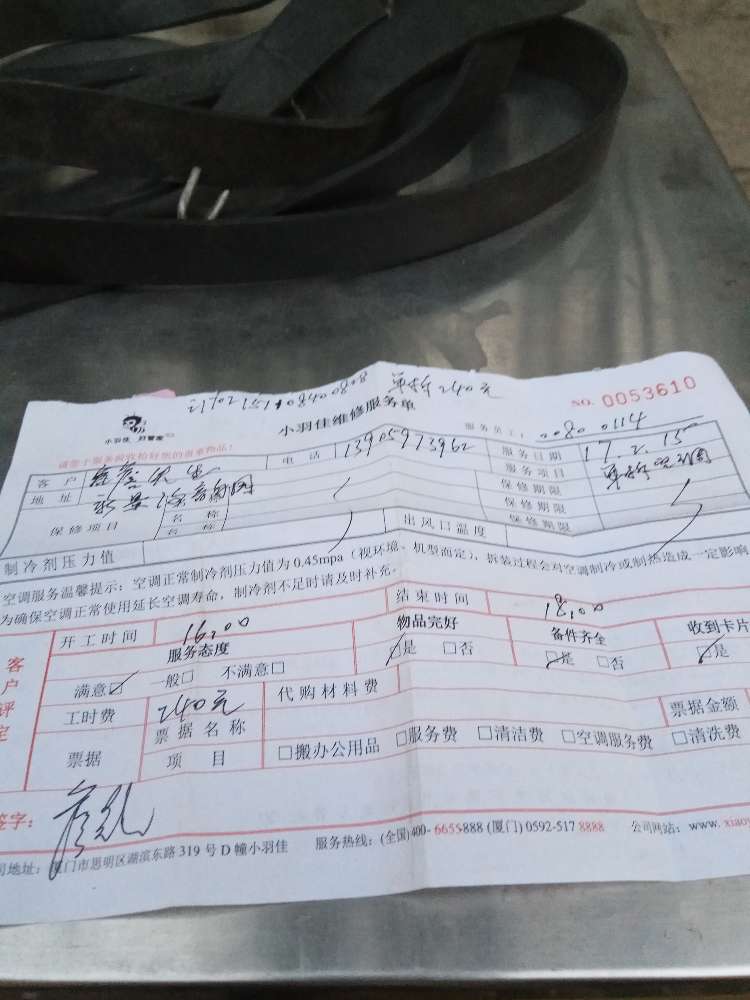 单拆240元
小羽佳 好管家
小羽佳维修服务单
NO. 0053610
请签字服务前收拾好您的贵重物品!
服务员工: 0080 0114
客户 先生 电话 13905913962 服务日期 17.2.15
地址 服务项目 单拆空调
保修项目 名称 保修期限
名称 保修期限
保修期限
制冷剂压力值 出风口温度
空调服务温馨提示:空调正常制冷剂压力值为0.45mpa(视环境、机型而定),拆装过程会对空调制冷或制热造成一定影响
为确保空调正常使用延长空调寿命,制冷剂不足时请及时补充。
客户评定
开工时间 16:00 结束时间 18:00
服务态度 物品完好 备件齐全 收到卡片
满意☑ 一般□ 不满意□ ☑是 □否 ☑是 □否 ☑是
工时费 240元 代购材料费
票据 票据名称 票据金额
项目 □搬办公用品 □服务费 □清洁费 □空调服务费 □清洗费
签字:
司地址: 厦门市思明区湖滨东路 319 号 D 幢小羽佳 服务热线: (全国)400- 6655888 (厦门) 0592-517 8888 公司网站: www. xiaoy